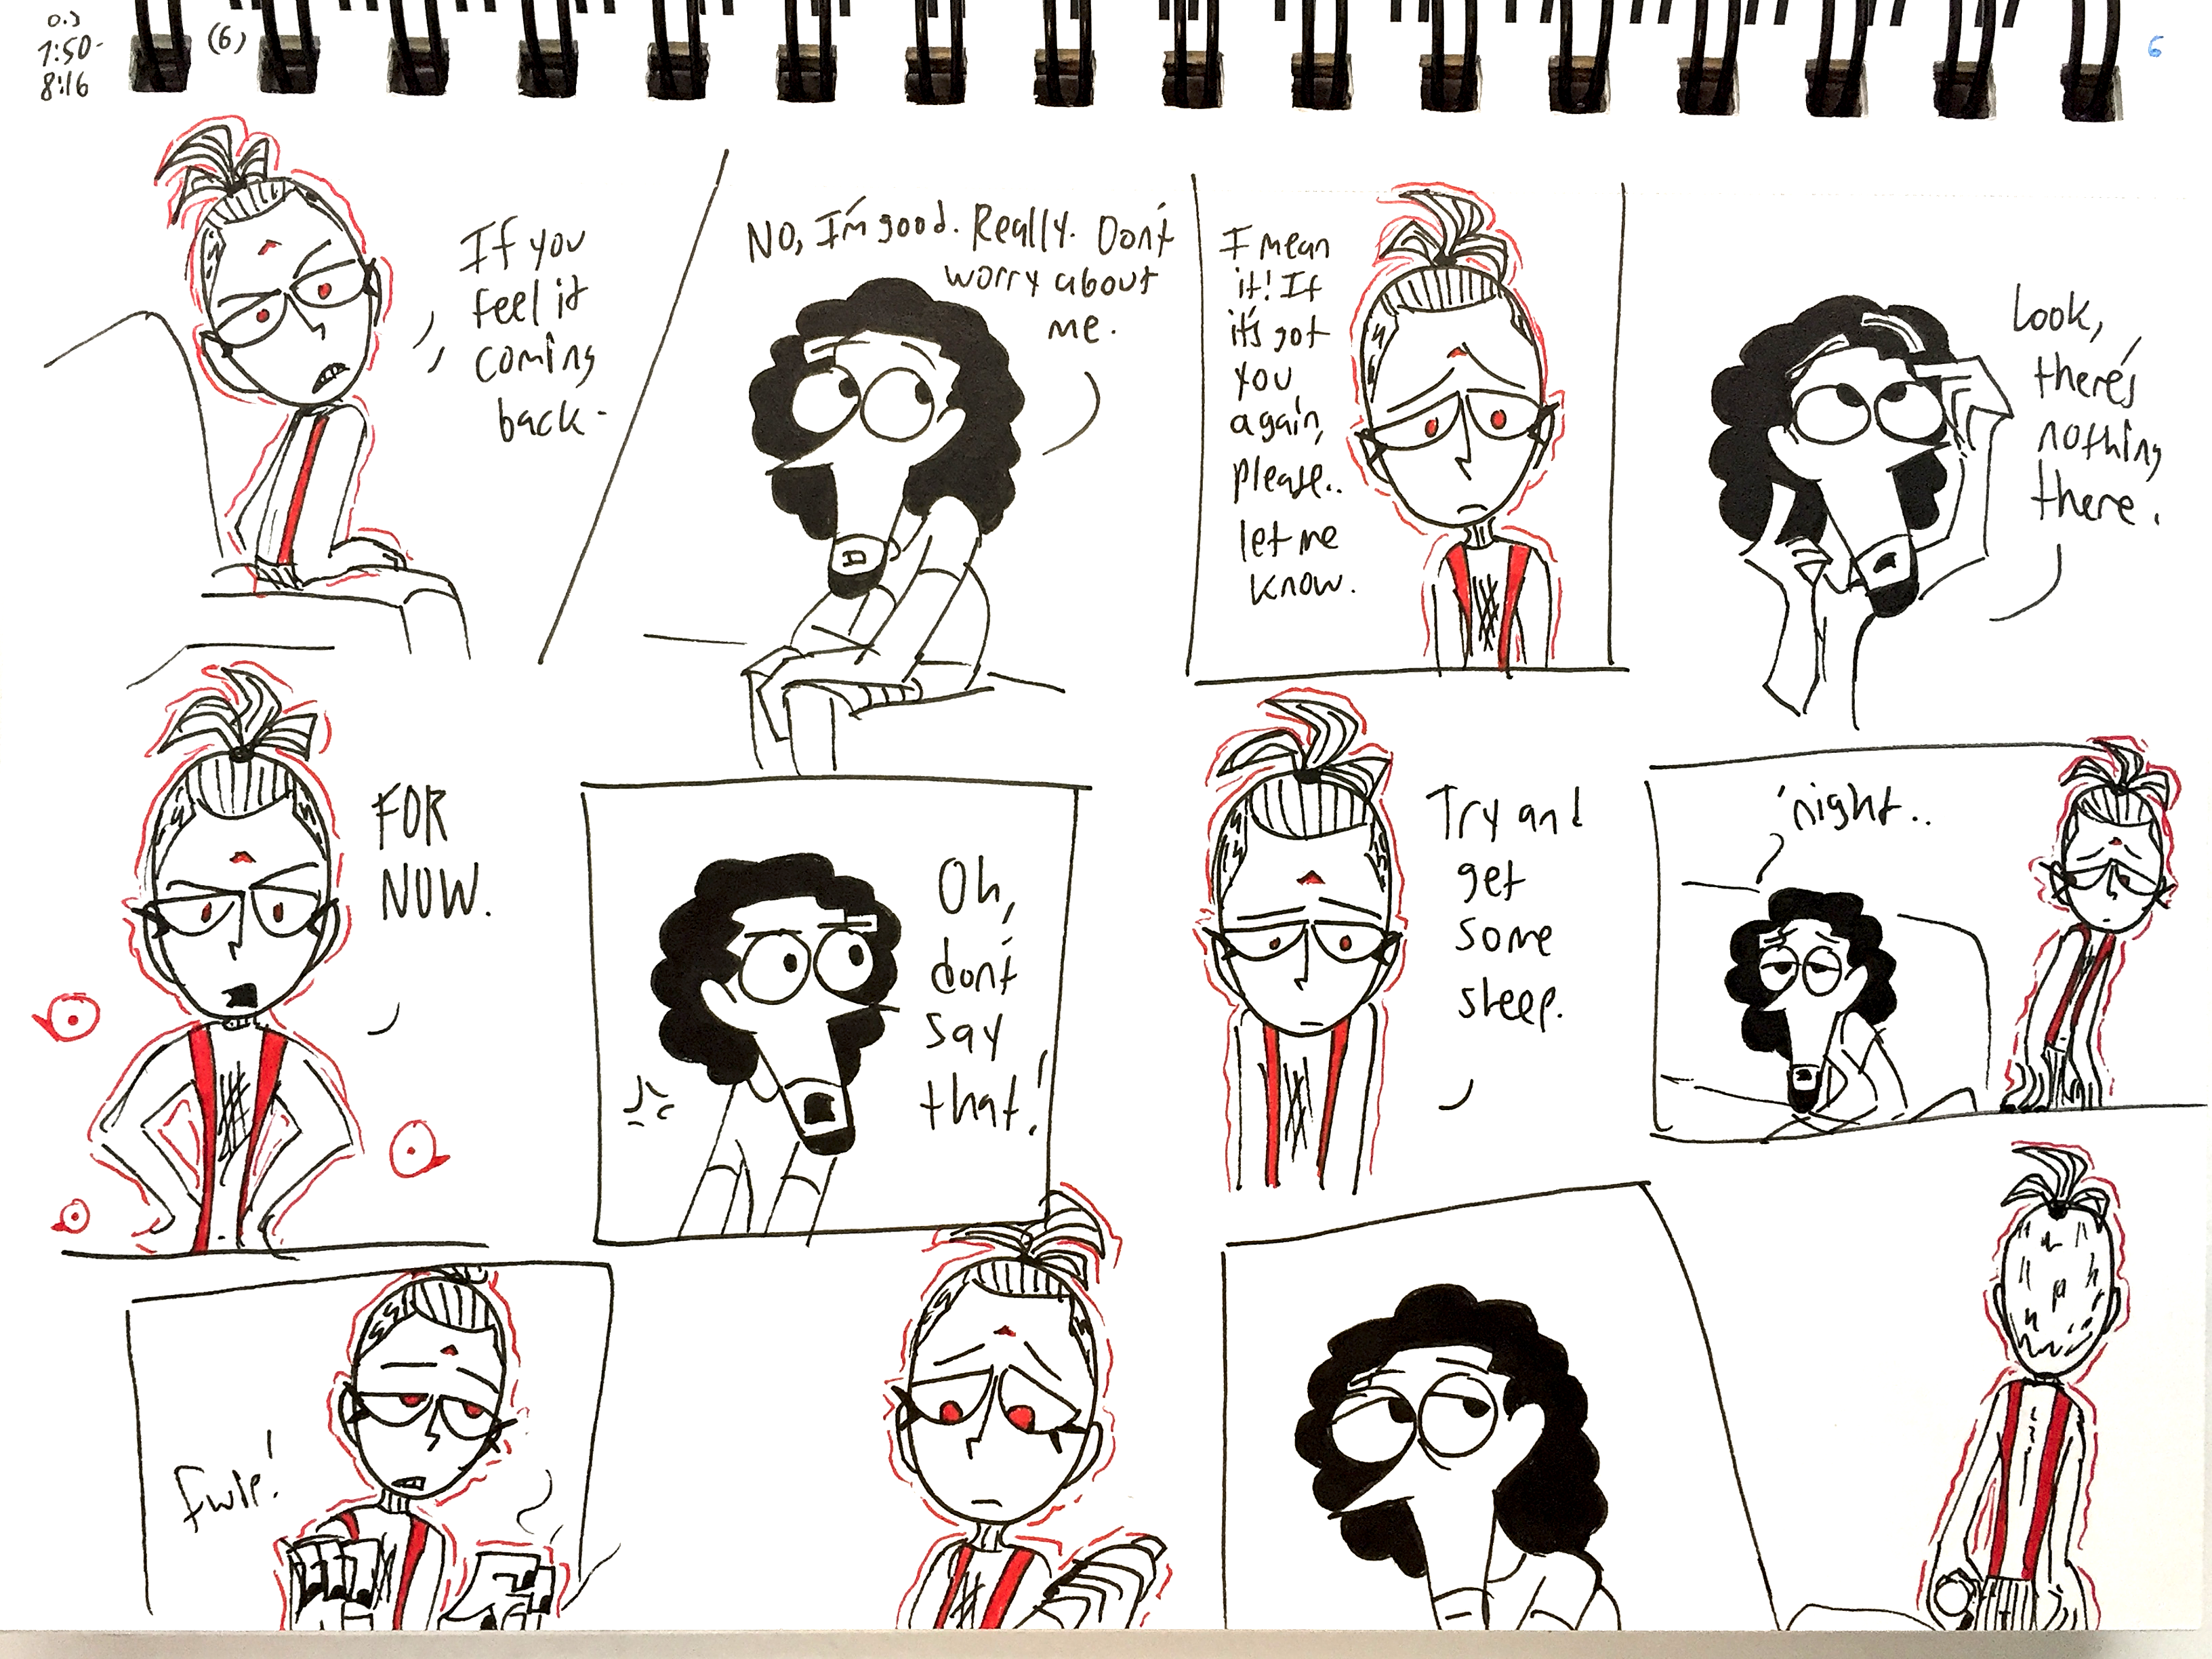 0.3
7:50-
8:16
(6)
6
If you
feel it
coming
back-
No, I'm good. Really. Don't
worry about
me.
I mean
it! If
it's got
you
again,
please..
let me
know.
Look,
there's
nothing
there.
FOR
NOW.
Oh,
don't
say
that!
Try and
get
some
sleep.
'night..
fwip!